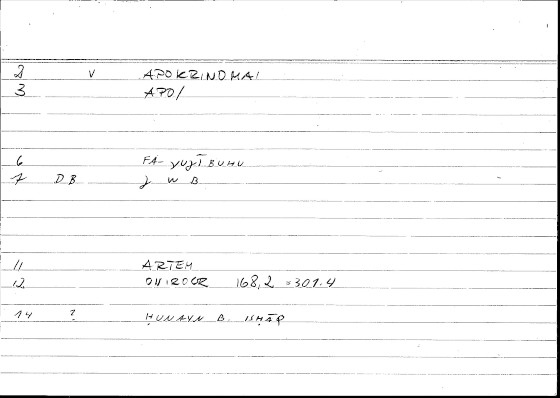 2 V APOKRINOMAI
3 APO/
6 FA- yuǧībuhu
7 DB ǧ w b
11 ARTEM
12 ONIROCR 168,2 = 301.4
14 ? ḤUNAYN B. ISḤĀQ